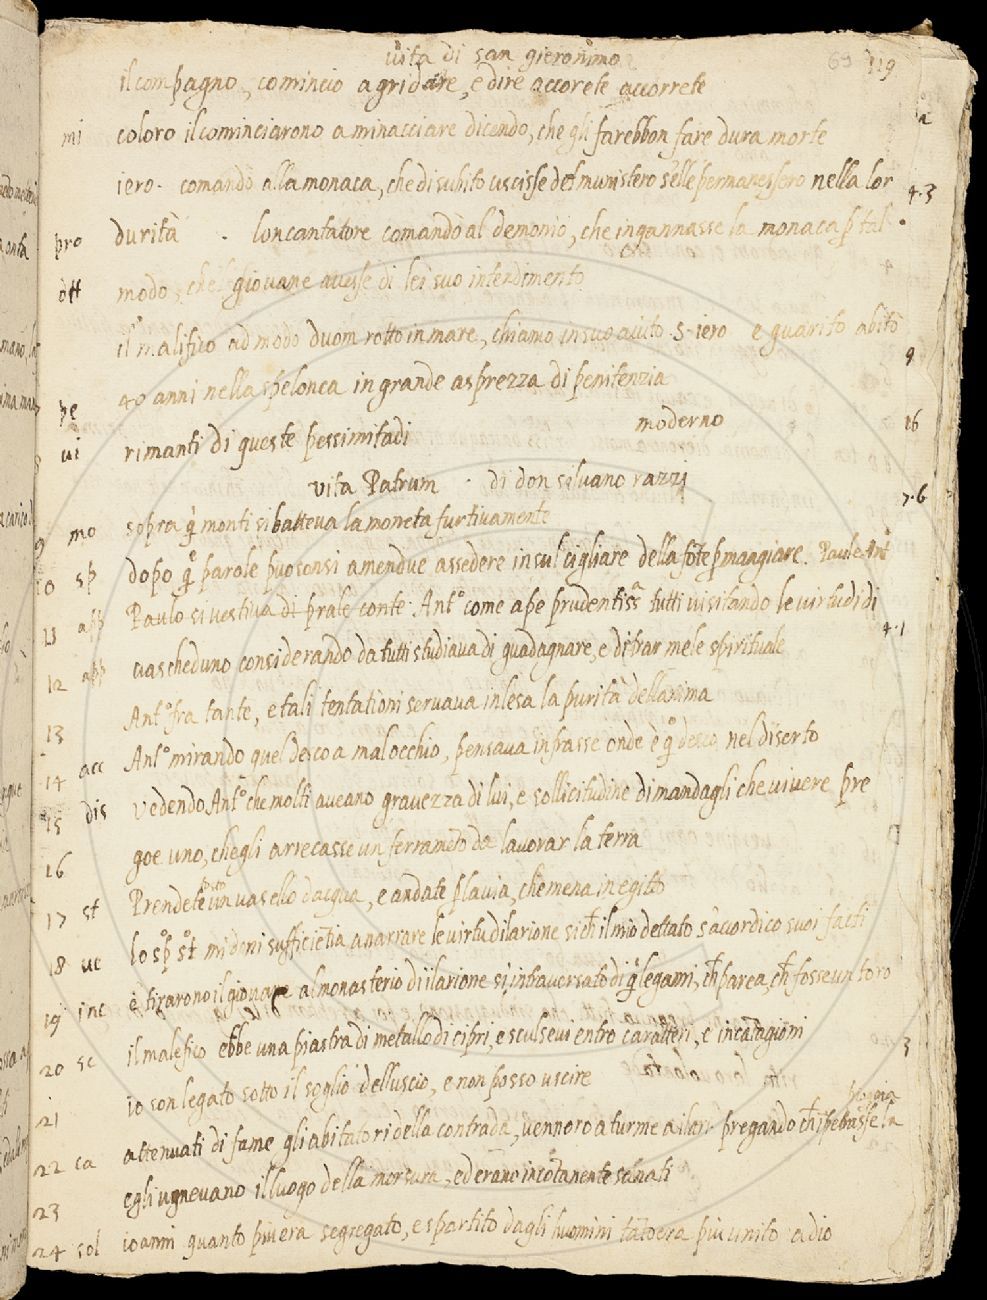 vita di san gieronimo 69 119
il compagno, comincio a gridare, e dire accorete accorrete
mi coloro il cominciarono a minacciare dicendo, che gli farebbon fare dura morte
iero. comandò alla monaca, che di subito uscisse del munistero se lle permanessero nella lor 4.3
pro durità . loncantatore comandò al demonio, che ingannasse la monaca p tal
ott modo, chel giovane avesse di lei suo intendimento
il malifico ad modo duom rotto in mare, chiamo in suo aiuto. S. iero e guarito abitò
40 anni nella spelonca in grande asprezza di penitenzia 9
pe moderno 16
ui rimanti di queste pessimitadi
vita Patrum . di don silvano razzi
mo sopra q monti si batteva la moneta furtivamente 7.6
10 sp dopo q parole puosonsi amendue assedere in sul cigliare della fote p mangiare. Paul e Ant
11 app Paulo si vestiva di prale conte. Ant come ape prudentiss tutti visitando le virtudi di
12 app ciascheduno considerando da tutti studiava di guadagnare, e di trar mele spirituale 4.1
13 Ant fra tante, e tali tentationi servava inlesa la purità dellanima
14 acc Ant mirando quel desco a mal occhio, pensava infrasse onde è q desco nel diserto
15 dis vedendo Ant che molti aveano gravezza di lui, e sollicitudine di mandagli che vivere pre
16 goe uno, chegli arrecasse un ferrameto da lavorar la terra
17 st Prendete un vasello dacqua, e andate p la via, che mena in egitto
18 ve lo sp st mi doni sufficietia a narrare le virtu dilarione sich il mio dettato saccordi co suoi facti
19 inc e tirarono il giovane al monasterio di ilarione si intraversato di q legami, ch parea, ch fosse un toro
20 sc il malefico ebbe una piastra di metallo di cipri, e sculsevi entro caratteri, e incatagioni 3
21 io son legato sotto il soglio delluscio, e non posso uscire
pioggia
22 ca attenuati di fame gli abitatori della contrada, vennoro a turme a ilar. pregando ch ipetrasse la
23 egli ugnevano il luogo della morsura, ed erano incotanente sanati
24 sol ioanni quanto piu era segregato, e spartito dagli huomini tato era piu unito a dio